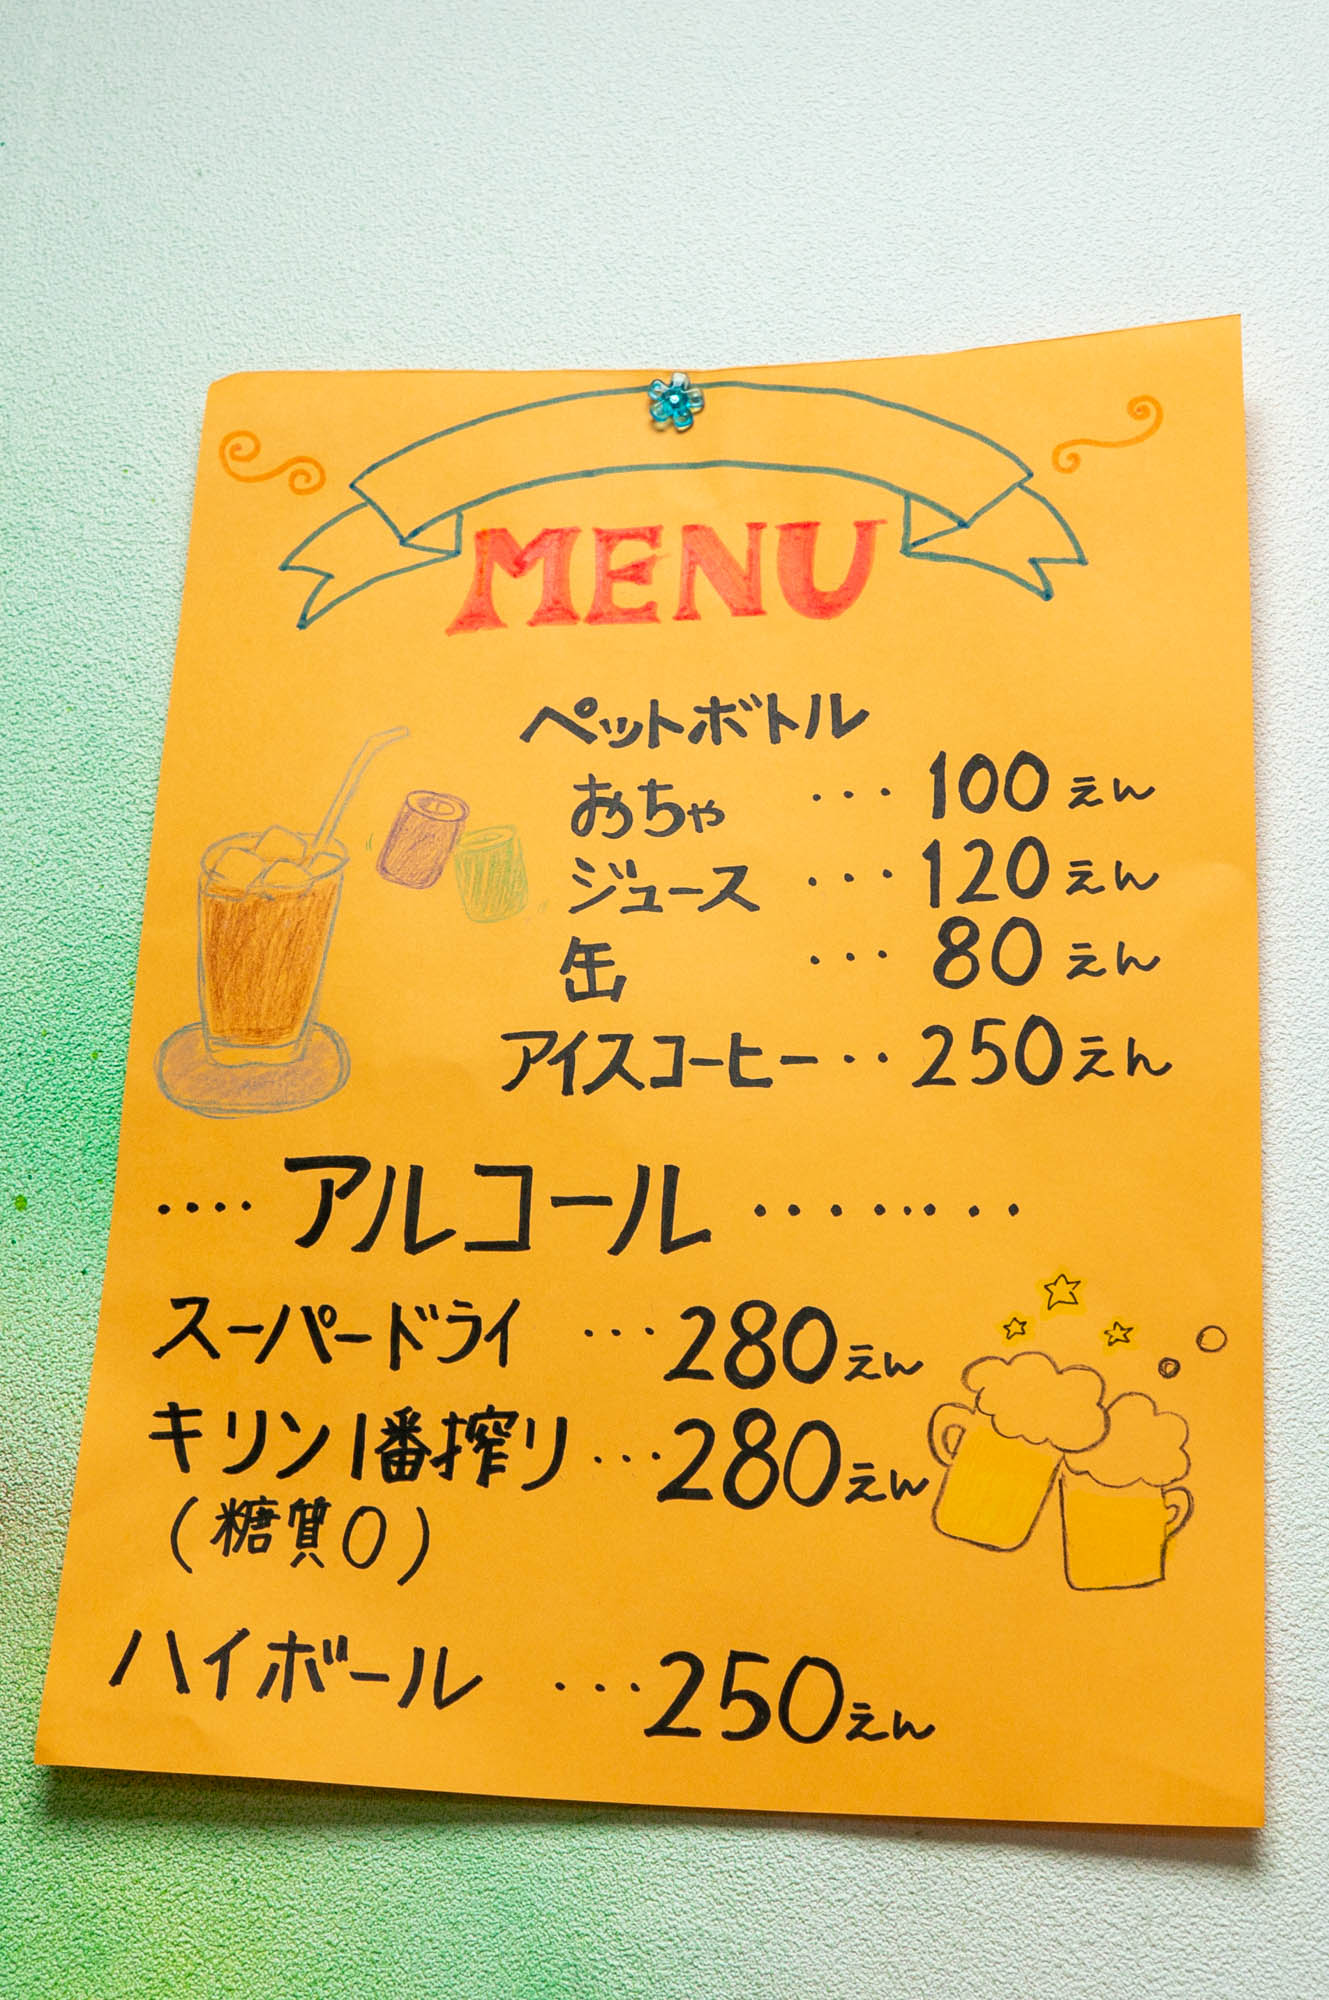 MENU
ペットボトル
おちゃ ... 100えん
ジュース ... 120えん
缶 ... 80えん
アイスコーヒー .. 250えん
.... アルコール ........
スーパードライ ... 280えん
キリン1番搾り ... 280えん
(糖質0)
ハイボール ... 250えん